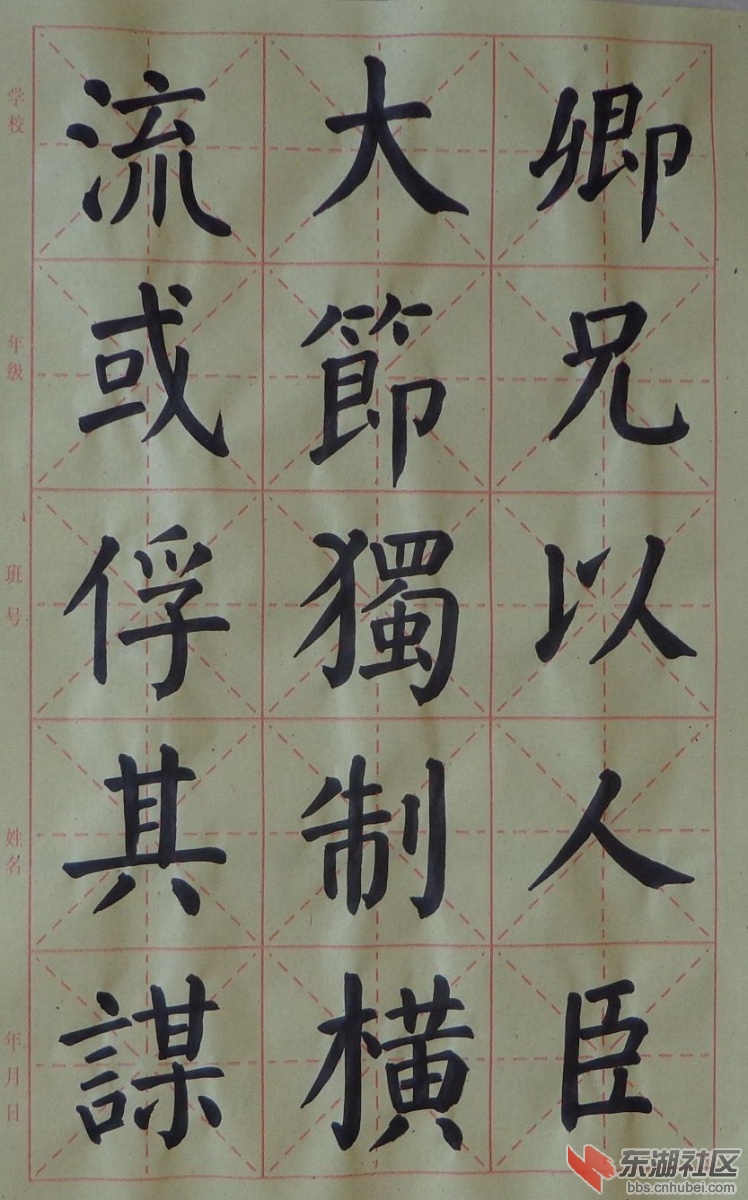 卿兄以人臣
大節獨制橫
流或俘其謀
学校
年级
班号
姓名
年月日
东湖社区
bbs.cnhubei.com